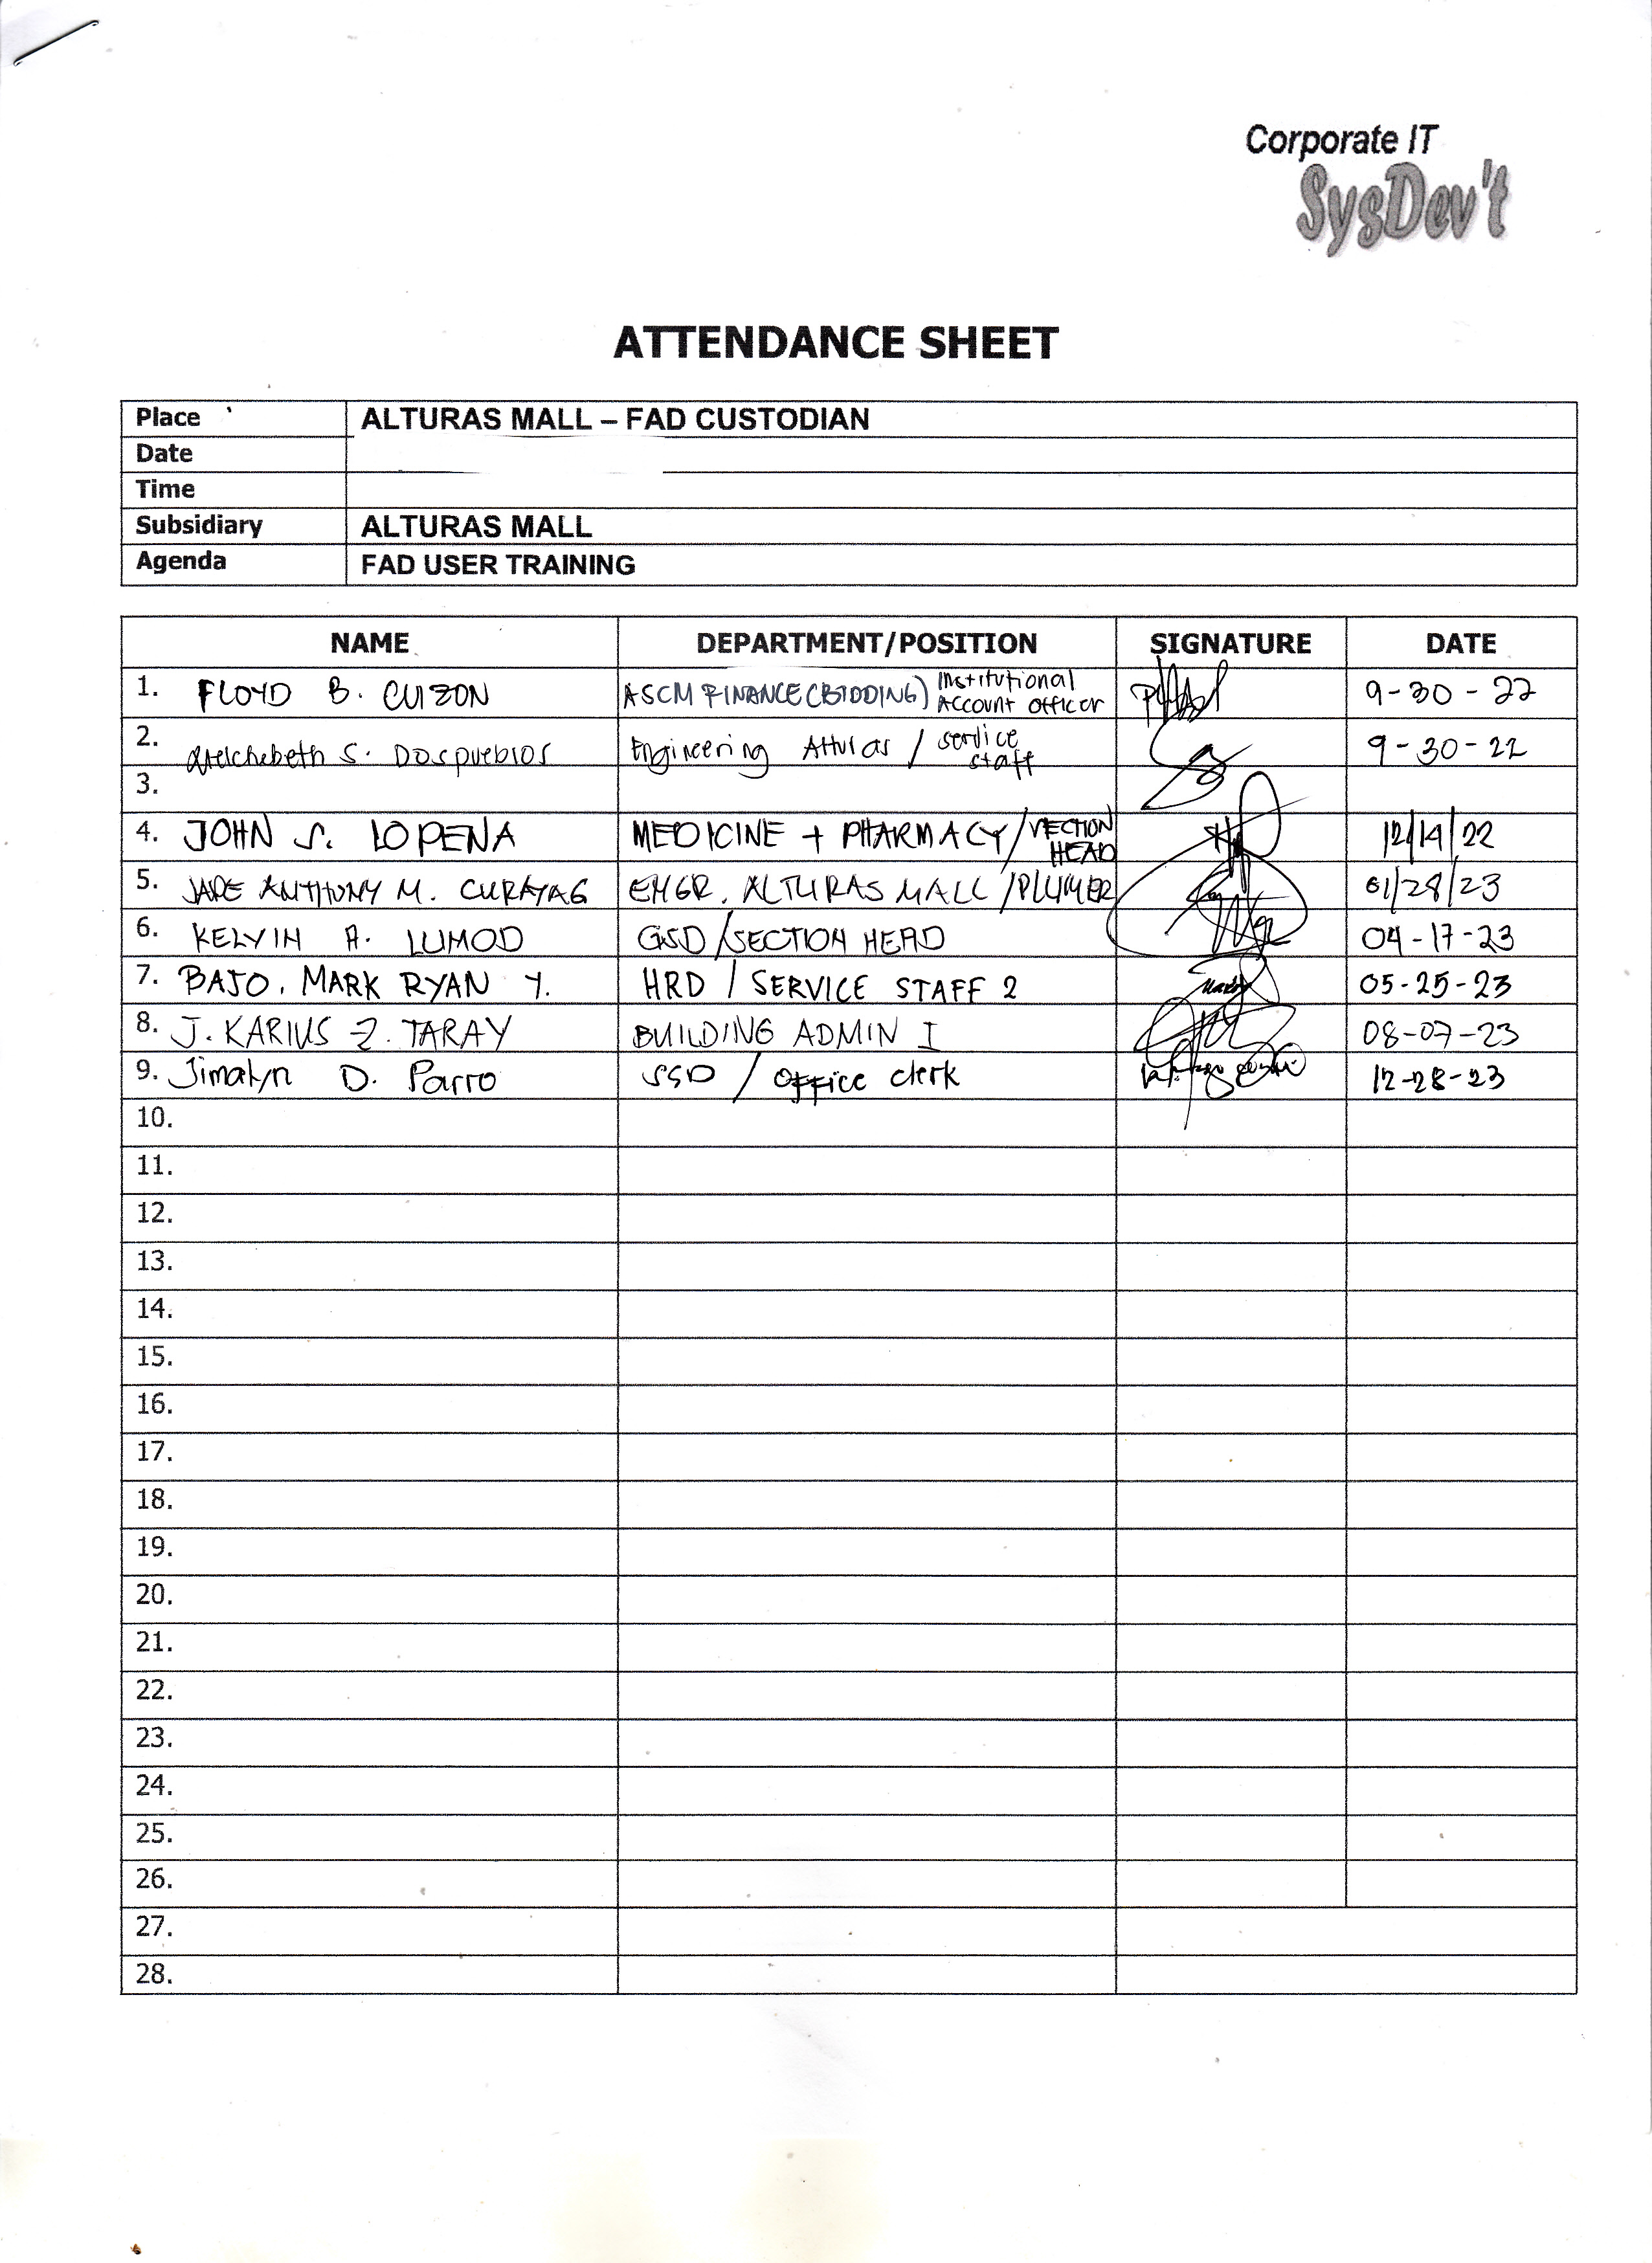 Corporate IT
SysDev't
ATTENDANCE SHEET
Place ALTURAS MALL – FAD CUSTODIAN
Date
Time
Subsidiary ALTURAS MALL
Agenda FAD USER TRAINING
NAME DEPARTMENT/POSITION SIGNATURE DATE
1. FLOYD B. CUIZON ASCM FINANCE (BIDDING) Institutional Account Officer 9-30-22
2. S. Dospueblos Engineering / service staff 9-30-22
3.
4. JOHN S. LOPENA MEDICINE + PHARMACY / SECTION HEAD 12/14/22
5. JADE ANTHONY M. CURAYAG ENGR. ALTURAS MALL / PLUMER 01/28/23
6. KELVIN A. LUMOD GSD / SECTION HEAD 04-17-23
7. BAJO, MARK RYAN Y. HRD / SERVICE STAFF 2 05-25-23
8. J. KARIUS Z. TARAY BUILDING ADMIN I 08-07-23
9. Jimalyn D. Parro SSD / Office clerk 12-28-23
10.
11.
12.
13.
14.
15.
16.
17.
18.
19.
20.
21.
22.
23.
24.
25.
26.
27.
28.